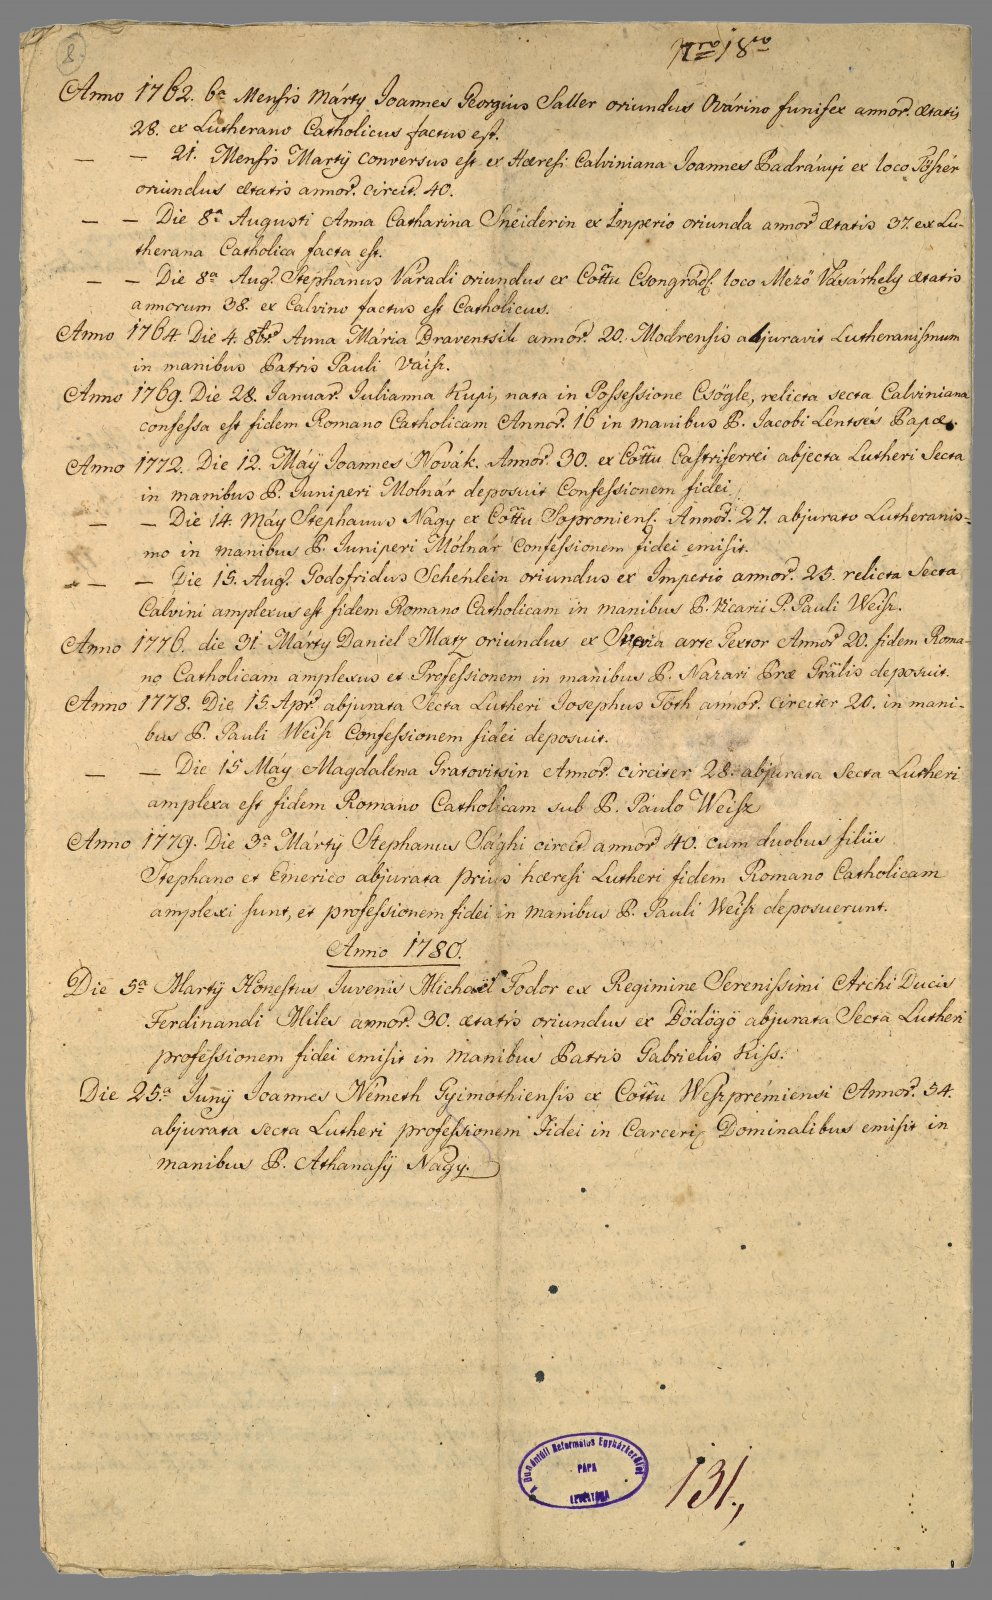 8.
Anno 1762. 6a Mensis Márty Joannes Georgius Saller oriundus Ovárino funifex annor. ætatis
28. ex Lutherano Catholicus factus est.
— — 21. Mensis Martÿ conversus est ex Hæresi Calviniana Joannes Padrányi ex loco
oriundus ætatis annor. circit. 40.
— — Die 8a Augusti Anna Catharina Sneiderin ex Imperio oriunda annor. ætatis 37. ex Lu-
therana Catholica facta est.
— — Die 8a Aug. Stephanus Váradi oriundus ex Cottu Csongrád. loco Mezö Vásárhely ætatis
annorum 38. ex Calvino factus est Catholicus.
Anno 1764 Die 4. 8br. Anna Mária Draventsik annor. 20. Modrensis abjuravit Lutheranismum
in manibus Patris Pauli Váisz.
Anno 1769. Die 28. Januar. Julianna Kupi, nata in Possessione Csögle, relicta secta Calviniana
confessa est fidem Romano Catholicam Annor. 16 in manibus P. Jacobi Lentsés Papæ.
Anno 1772. Die 12. Máÿ Joannes Novák. Annor. 30. ex Cottu Castriferrei abjecta Lutheri Secta
in manibus P. Juniperi Molnár deposuit Confessionem fidei
— — Die 14. Máy Stephanus Nagy ex Cottu Soproniens. Annor. 27. abjurato Lutheranis-
mo in manibus P. Juniperi Mólnár Confessionem fidei emisit.
— — Die 15. Aug. Godofridus Schenlein oriundus ex Imperio annor. 25. relicta Secta
Calvini amplexus est fidem Romano Catholicam in manibus P. Vicarii P. Pauli Weisz.
Anno 1776. die 31 Márty Daniel Matz oriundus ex Svevia arte Textor Annor. 20. fidem Roma-
no Catholicam amplexus et Professionem in manibus P. Nazari Præ Grâlis deposuit.
Anno 1778. Die 15. Apr. abjurata Secta Lutheri Josephus Tóth annor. circiter 20. in mani-
bus P. Pauli Weisz Confessionem fidei deposuit.
— — Die 15 Máy Magdalena Gratovitsin Annor. circiter 28. abjurata Secta Lutheri
amplexa est fidem Romano Catholicam sub P. Páulo Weisz
Anno 1779. Die 3a Mártÿ Stephanus Sághi circit. annor. 40. cum duobus filiis
Stephano et Emerico abjurata prius hæresi Lutheri fidem Romano Catholicam
amplexi sunt, et professionem fidei in manibus P. Pauli Weisz deposuerunt.
Anno 1780.
Die 5a Martÿ Honestus Juvenis Michaël Fodor ex Regimine Serenissimi Archi Ducis
Ferdinandi Miles annor. 30. ætatis oriundus ex Bödögö abjurata Secta Lutheri
professionem fidei emisit in manibus Patris Gabrielis Kiss.
Die 25.a Junÿ Joannes Németh Gyimothiensis ex Cottu Weszprémiensi Annor. 54.
abjurata secta Lutheri professionem Fidei in Carcerib. Dominalibus emisit in
manibus P. Athanasÿ Nagy.
A Dunántúli Református Egyházkerület
PÁPA
LEVÉLTÁRA
131.,